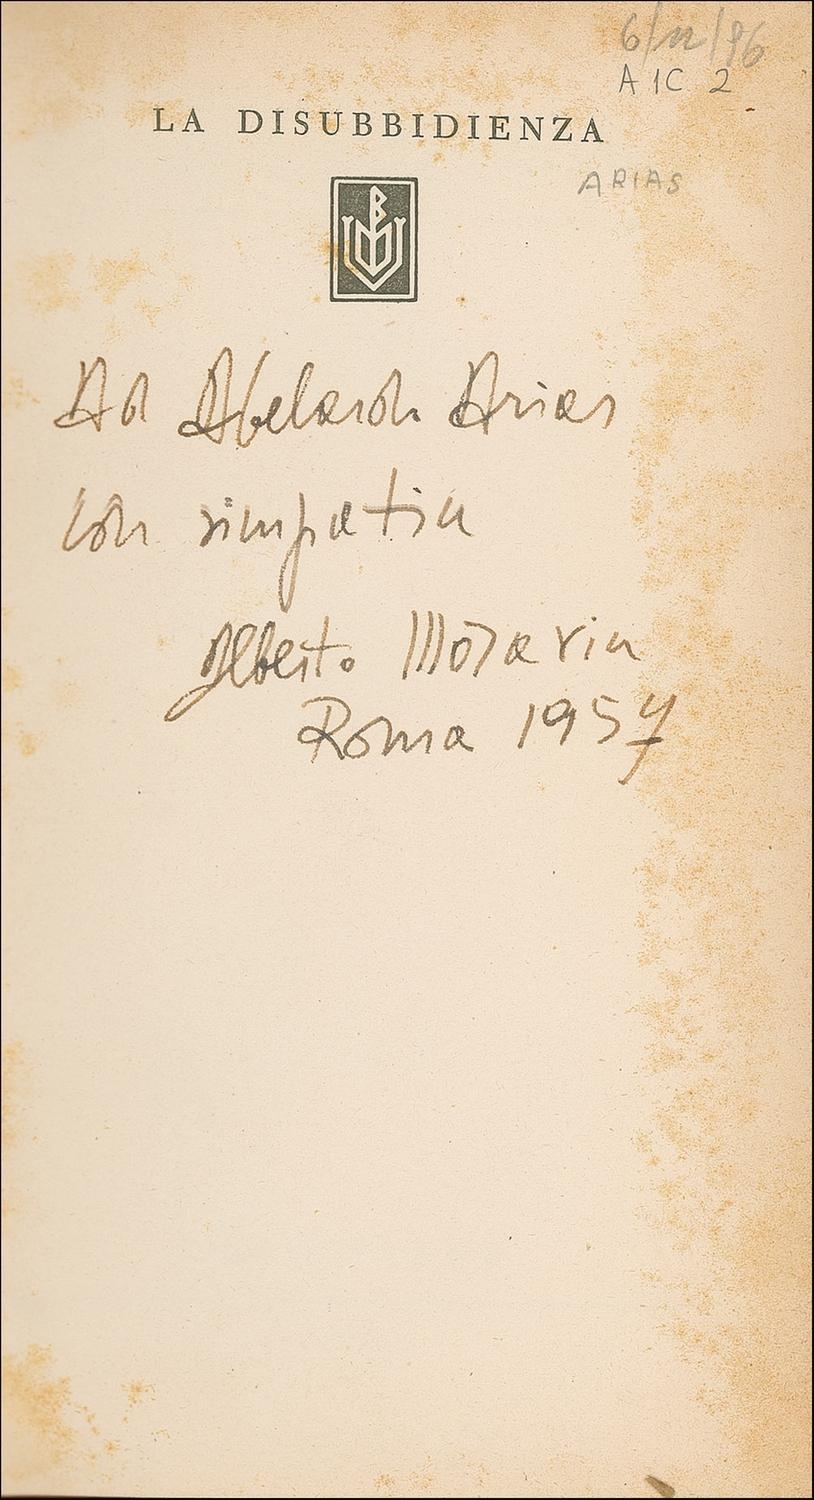 6/12/96
A 1C 2
LA DISUBBIDIENZA
ARIAS
Ad Abelardo Arias
con simpatia
Alberto Moravia
Roma 1957